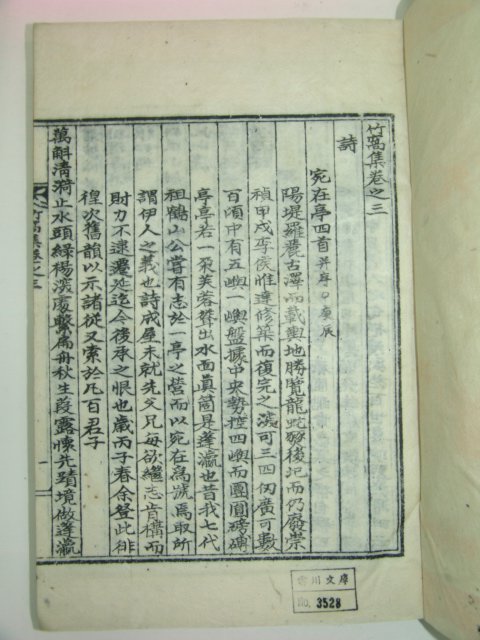 竹窩集卷之三
詩
宛在亭四首 并序○庚辰
陽堤羅麓古澤而載輿地勝覽龍蛇燹後圮而仍廢崇
禎甲戌李侯惟達修築而復完之深可三四仞廣可數
百頃中有五嶼一嶼盤據中央勢控四嶼而團圓磅礴
亭亭若一朶芙蓉聳出水面眞箇是蓬瀛也昔我七代
祖鶴山公嘗有志於一亭之營而以宛在爲號爲取所
謂伊人之義也詩成屋未就先父兄每欲繼志肯構而
財力不逮遷延迄今後承之恨也歲丙子春余登此徘
徨次舊韻以示諸從又索於凡百君子
萬斛淸漪止水頭綠楊深處繫扁舟秋生葭露懷先躅境倣蓬瀛
竹窩集卷之三
一
雲川文庫
No. 3528